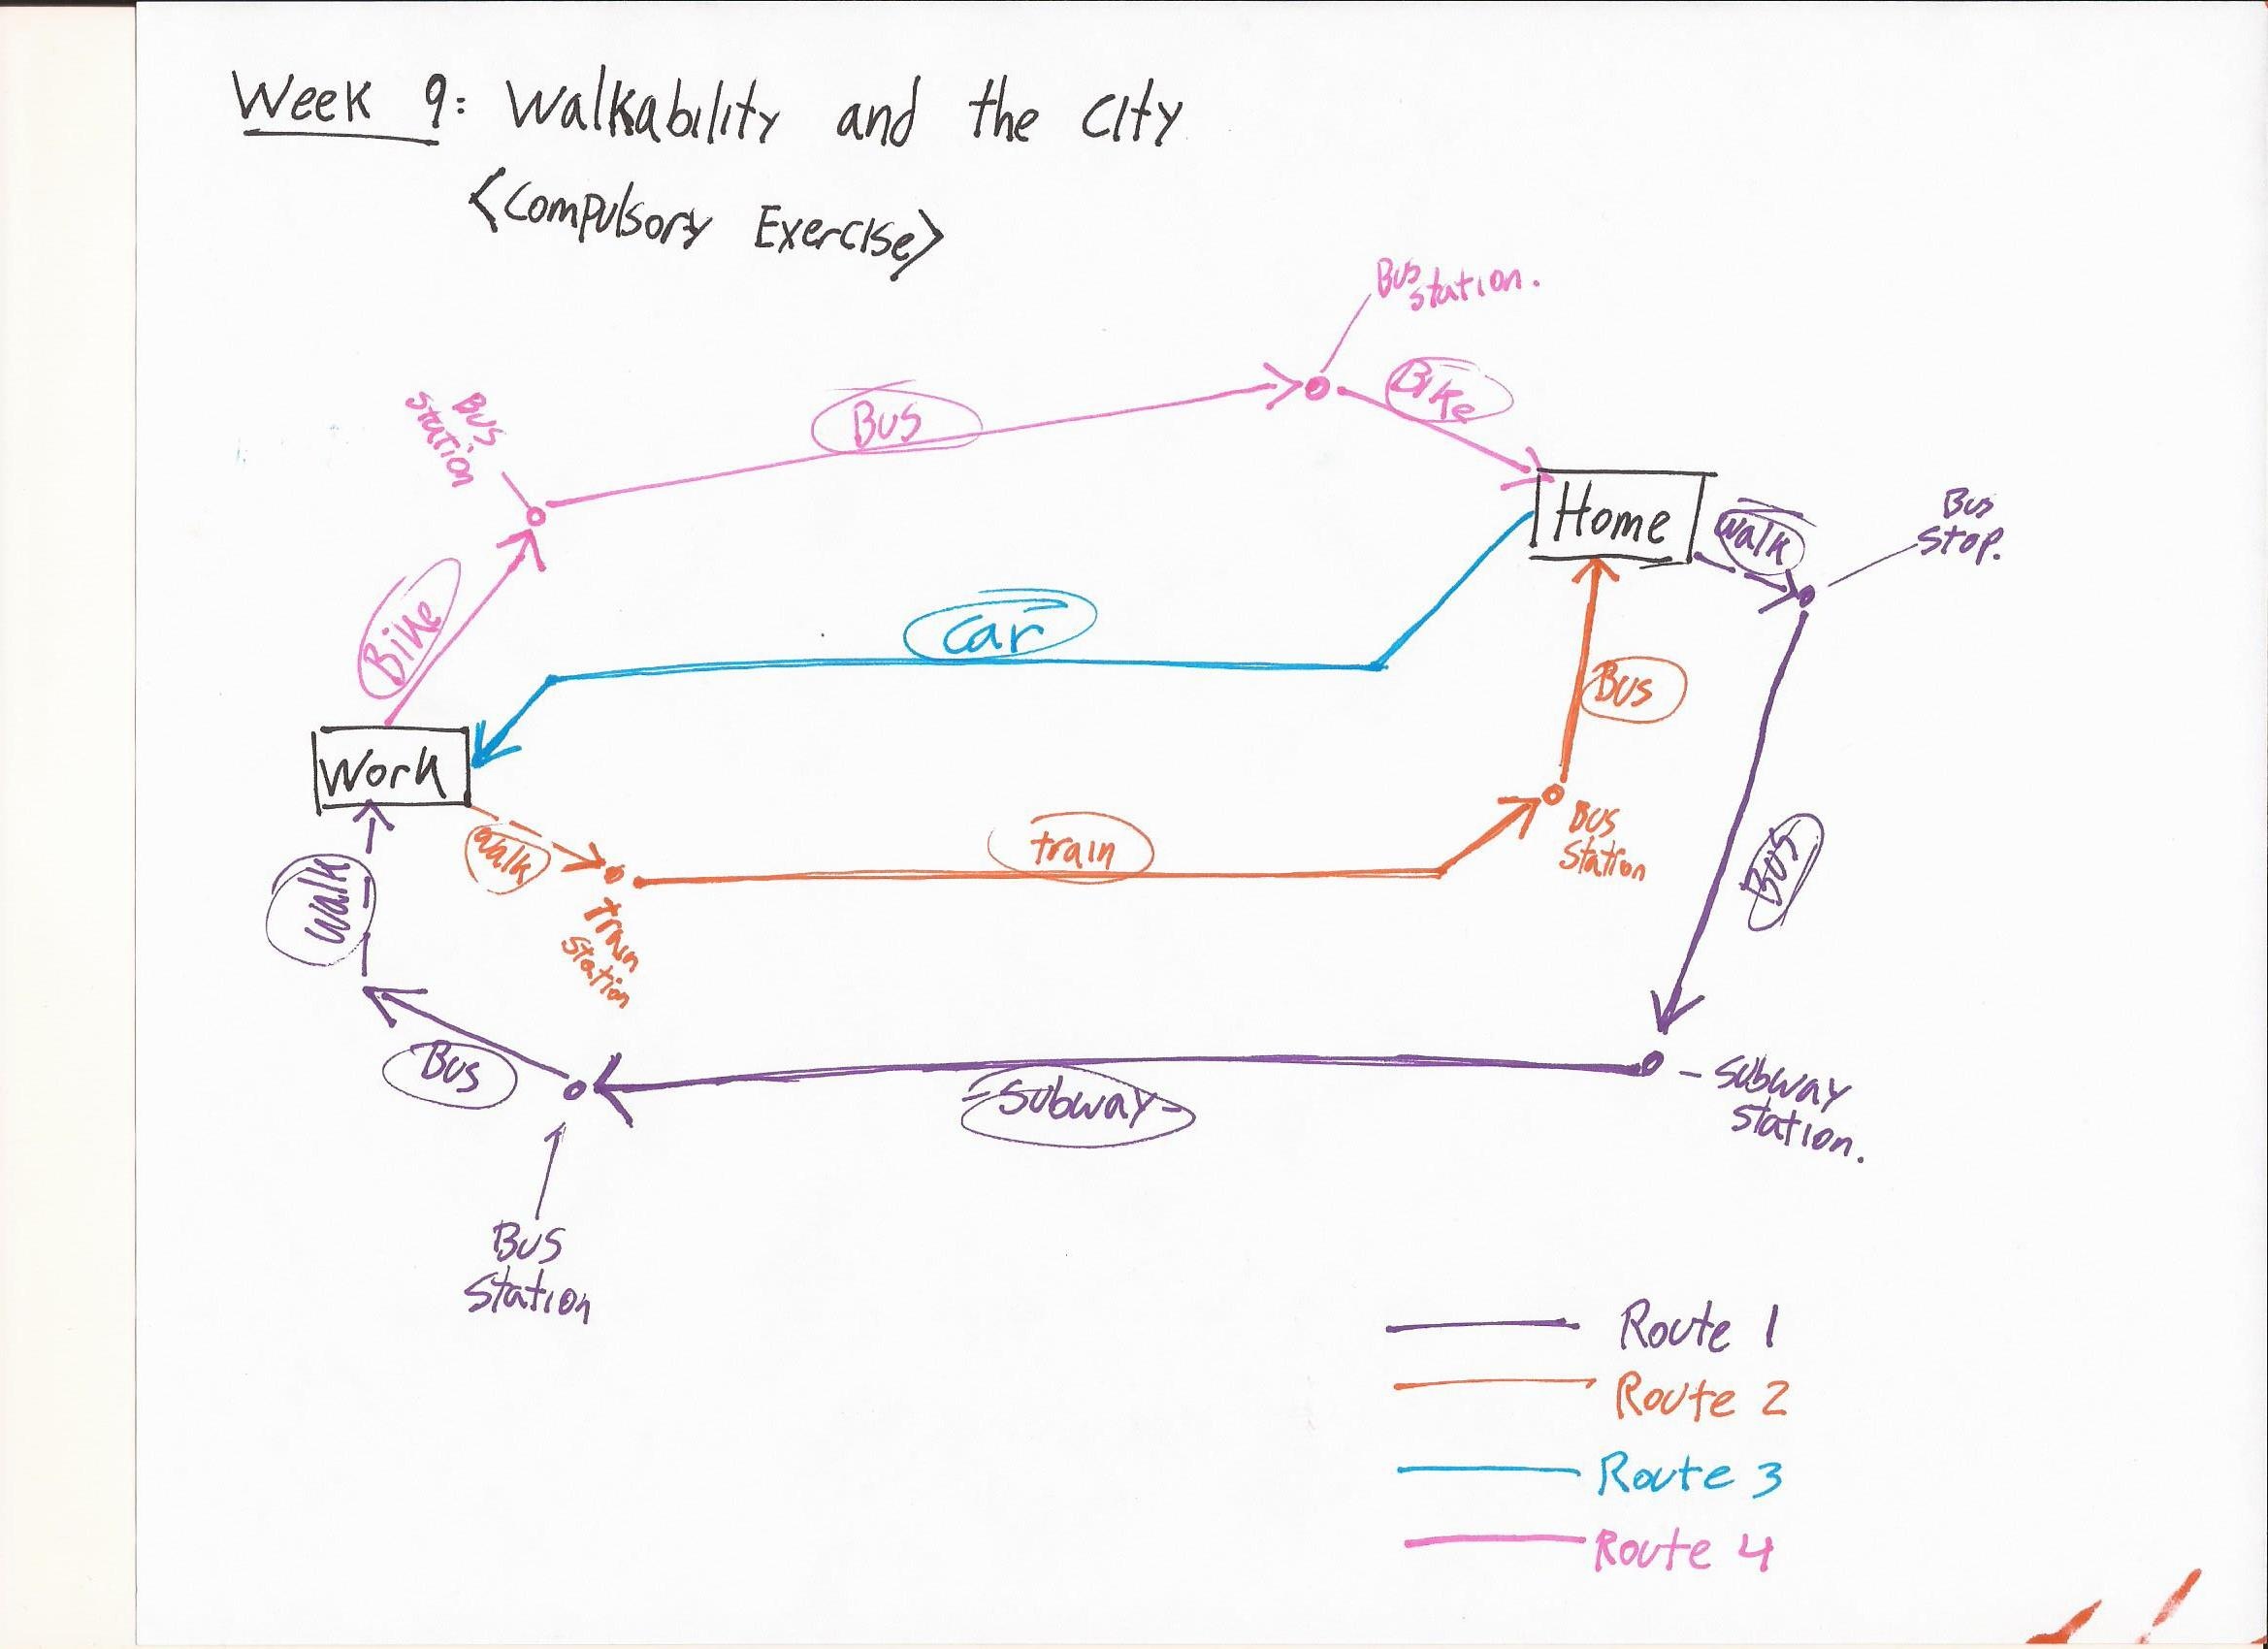 Week 9: Walkability and the City
<Compulsory Exercise>
Bus
station.
Bike
Bus
Bus
station
Home
walk
Bus
stop.
Bike
Car
Bus
Work
walk
train
Bus
Station
Bus
walk
Train
Station
Bus
Subway
- Subway
Station.
Bus
Station
Route 1
Route 2
Route 3
Route 4